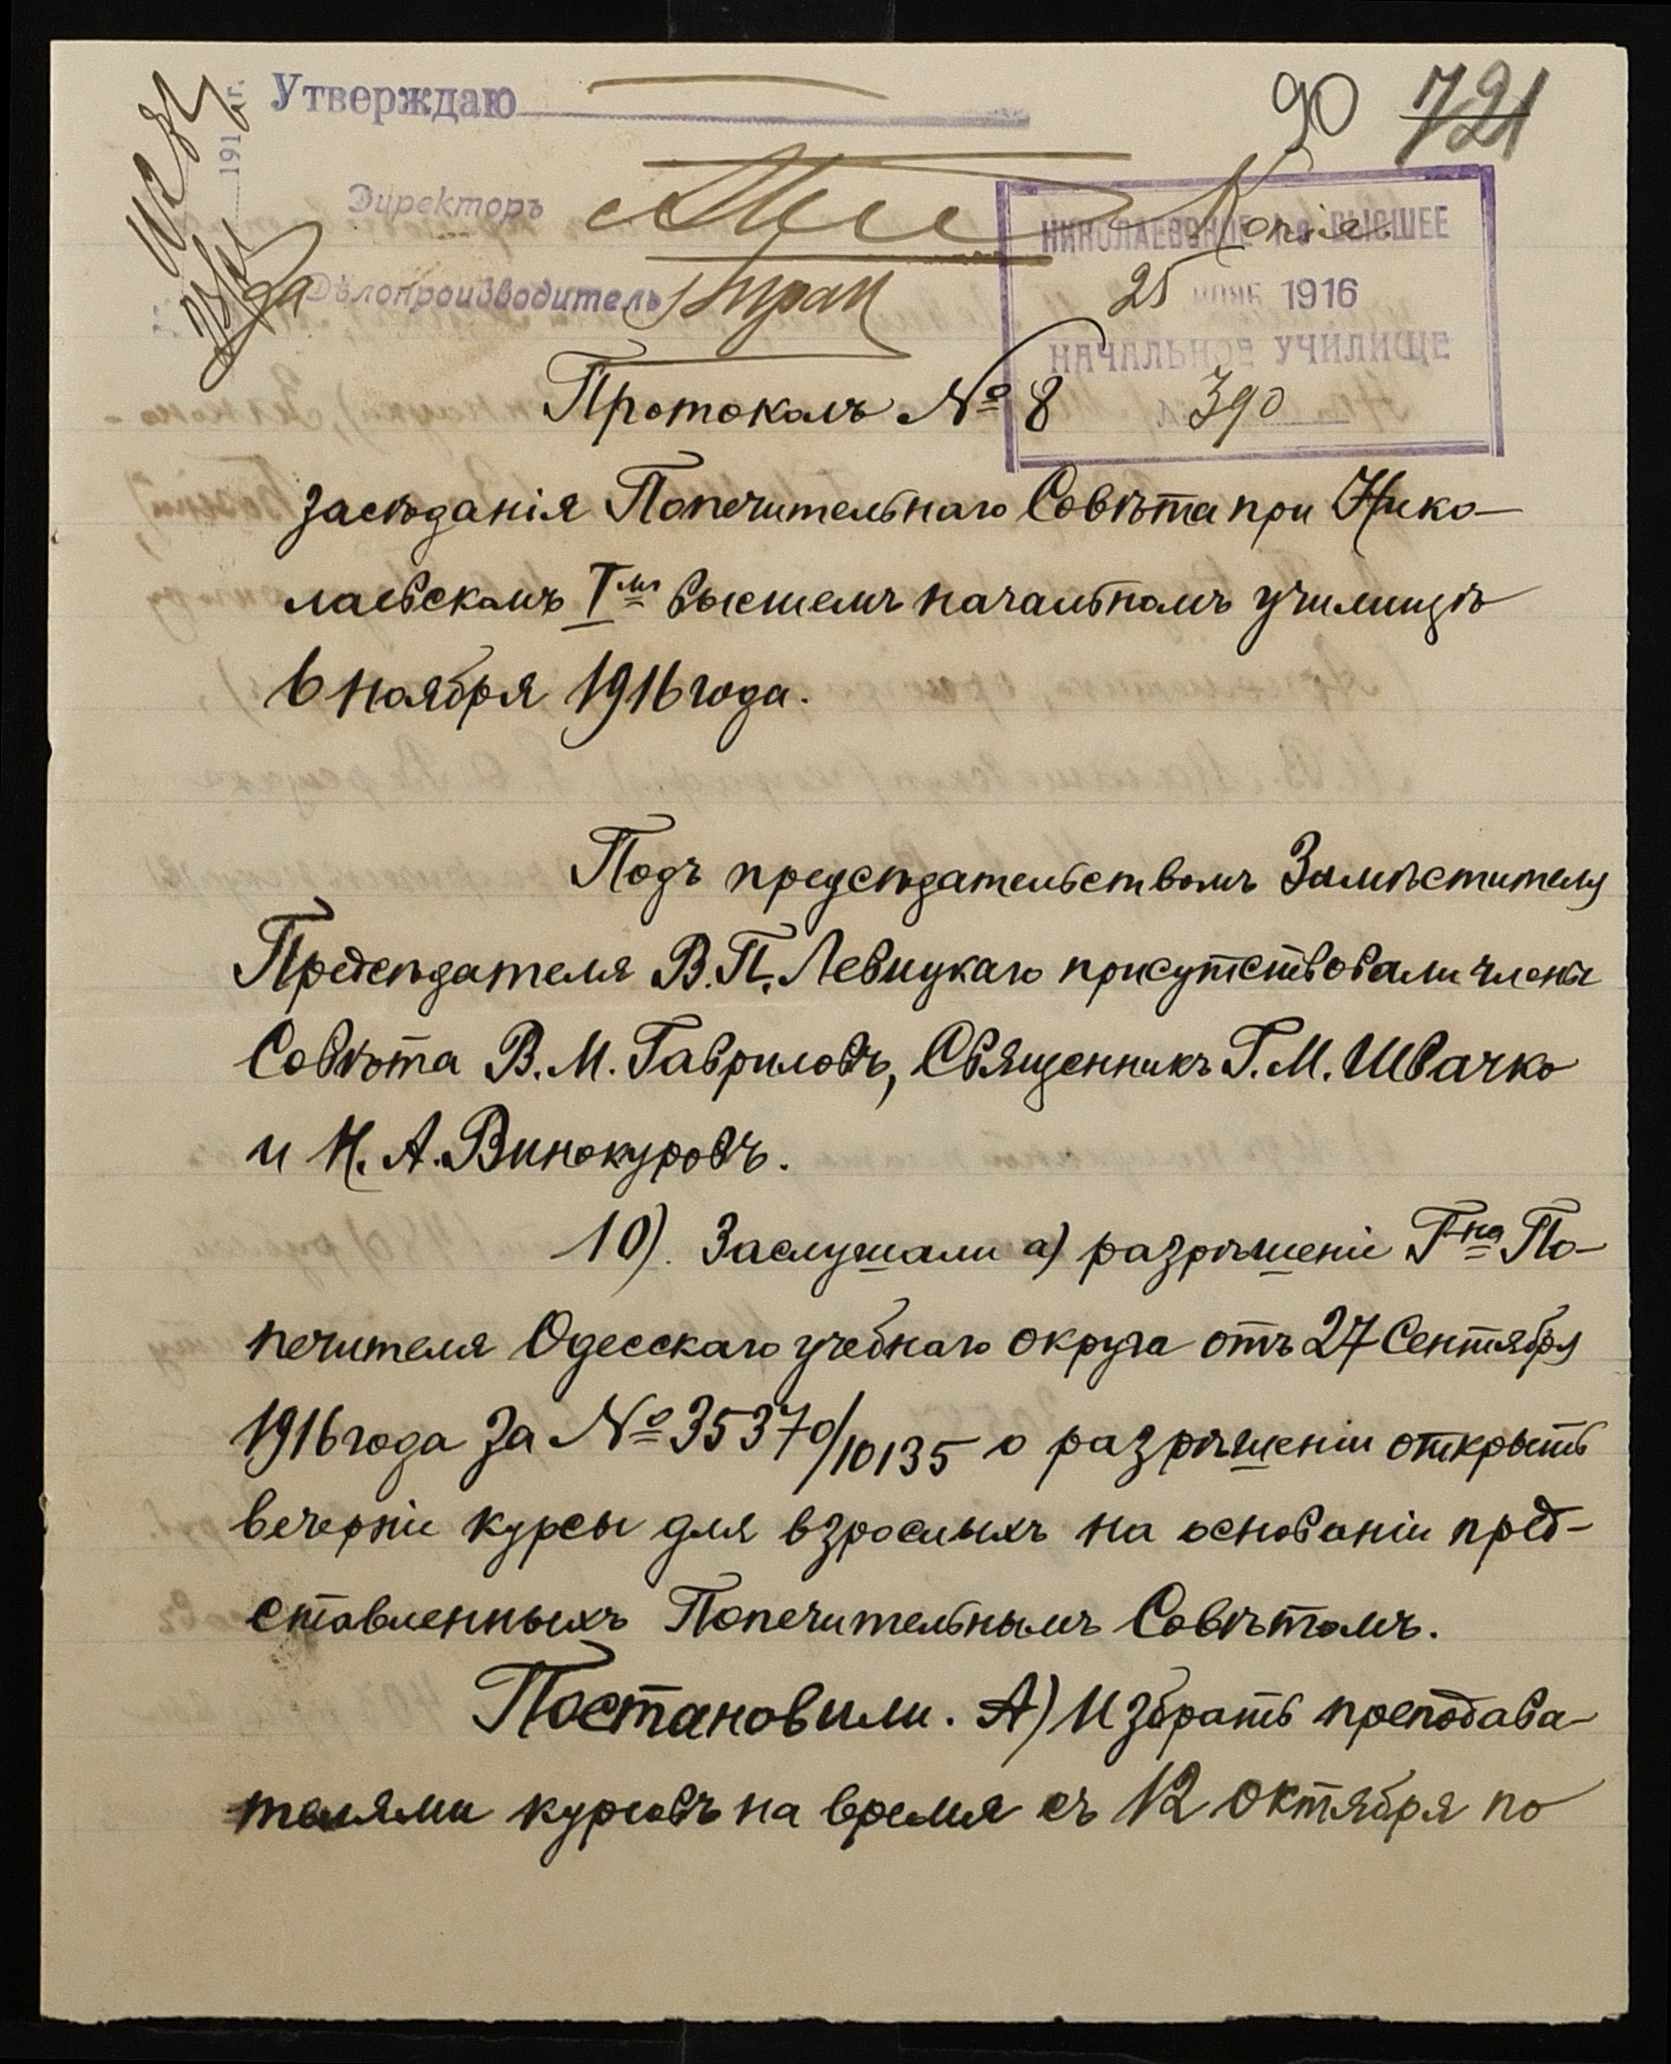 90 721
Утверждаю
191 г.
Директоръ
Копія
НИКОЛАЕВСКОЕ 1-е ВЫСШЕЕ
25 НОЯБ 1916
НАЧАЛЬНОЕ УЧИЛИЩЕ
№ 390
Дѣлопроизводитель
Протоколъ № 8
засѣданія Попечительнаго Совѣта при Нико-
лаевскомъ Iмъ высшемъ начальномъ училищѣ
6 ноября 1916 года.
Подъ предсѣдательствомъ Замѣстителя
Предсѣдателя В. П. Левицкаго присутствовали члены
Совѣта В. М. Гавриловъ, Священникъ Г. М. Швачко
и Н. А. Винокуровъ.
10). Заслушали а) разрѣшеніе Гна По-
печителя Одесскаго учебнаго округа отъ 27 Сентября
1916 года за № 35370/10135 о разрѣшеніи открыть
вечерніе курсы для взрослыхъ на основаніи пред-
ставленныхъ Попечительнымъ Совѣтомъ.
Постановили. А) Избрать преподава-
телями курсовъ на время съ 12 Октября по